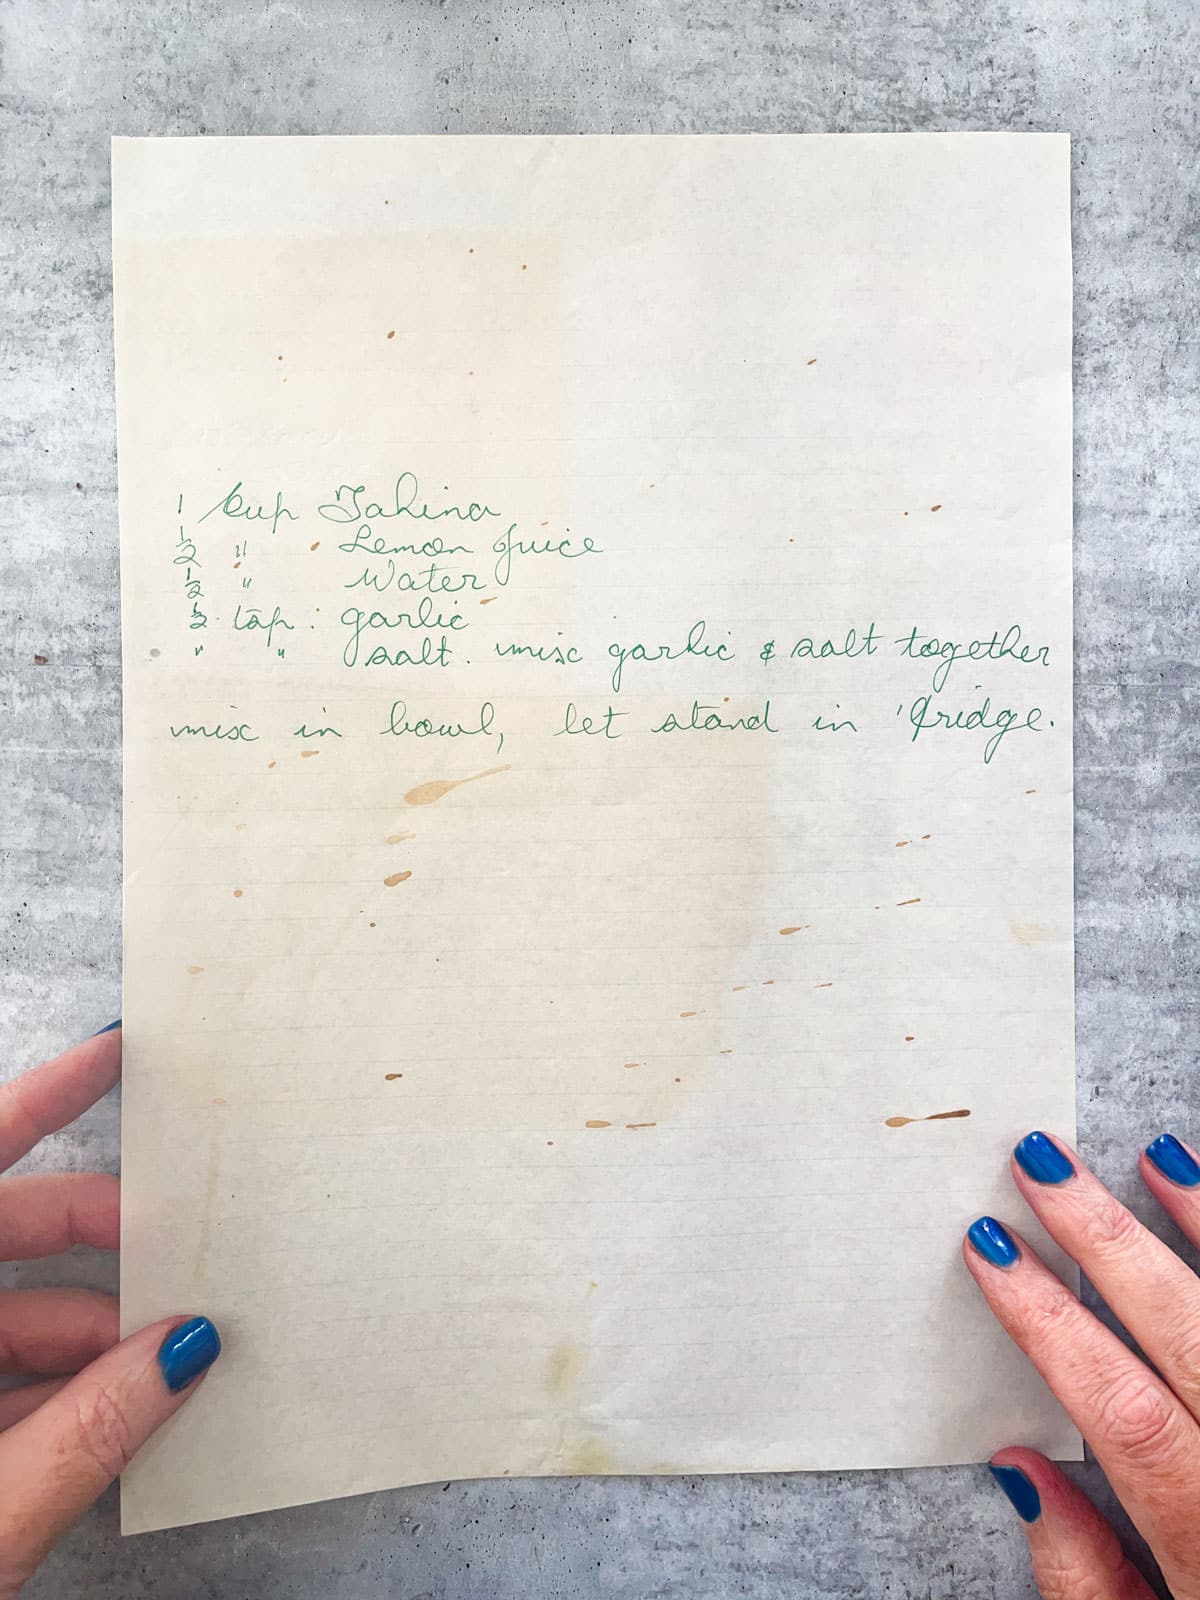 1 Cup Tahina
½ " Lemon Juice
½ " Water
½ tsp: garlic
" " salt. mix garlic & salt together
mix in bowl, let stand in 'fridge.